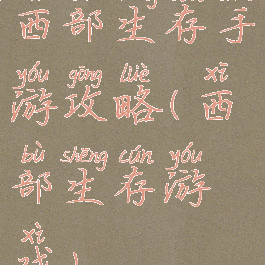 西部生存手
yóu gōng lüè xī
游攻略(西
bù shēng cún yóu
部生存游
xì
戏)